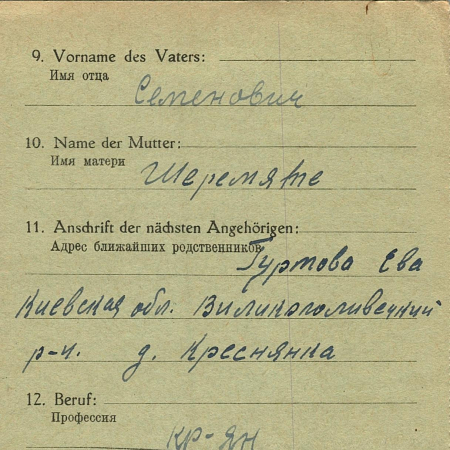 9. Vorname des Vaters:
Имя отца
Семенович
10. Name der Mutter:
Имя матери
Шеремяте
11. Anschrift der nächsten Angehörigen:
Адрес ближайших родственников
Гуртова Ева
Киевская обл. Виликополивечкий
р-н. д. Креснянка
12. Beruf:
Профессия
кр-ян